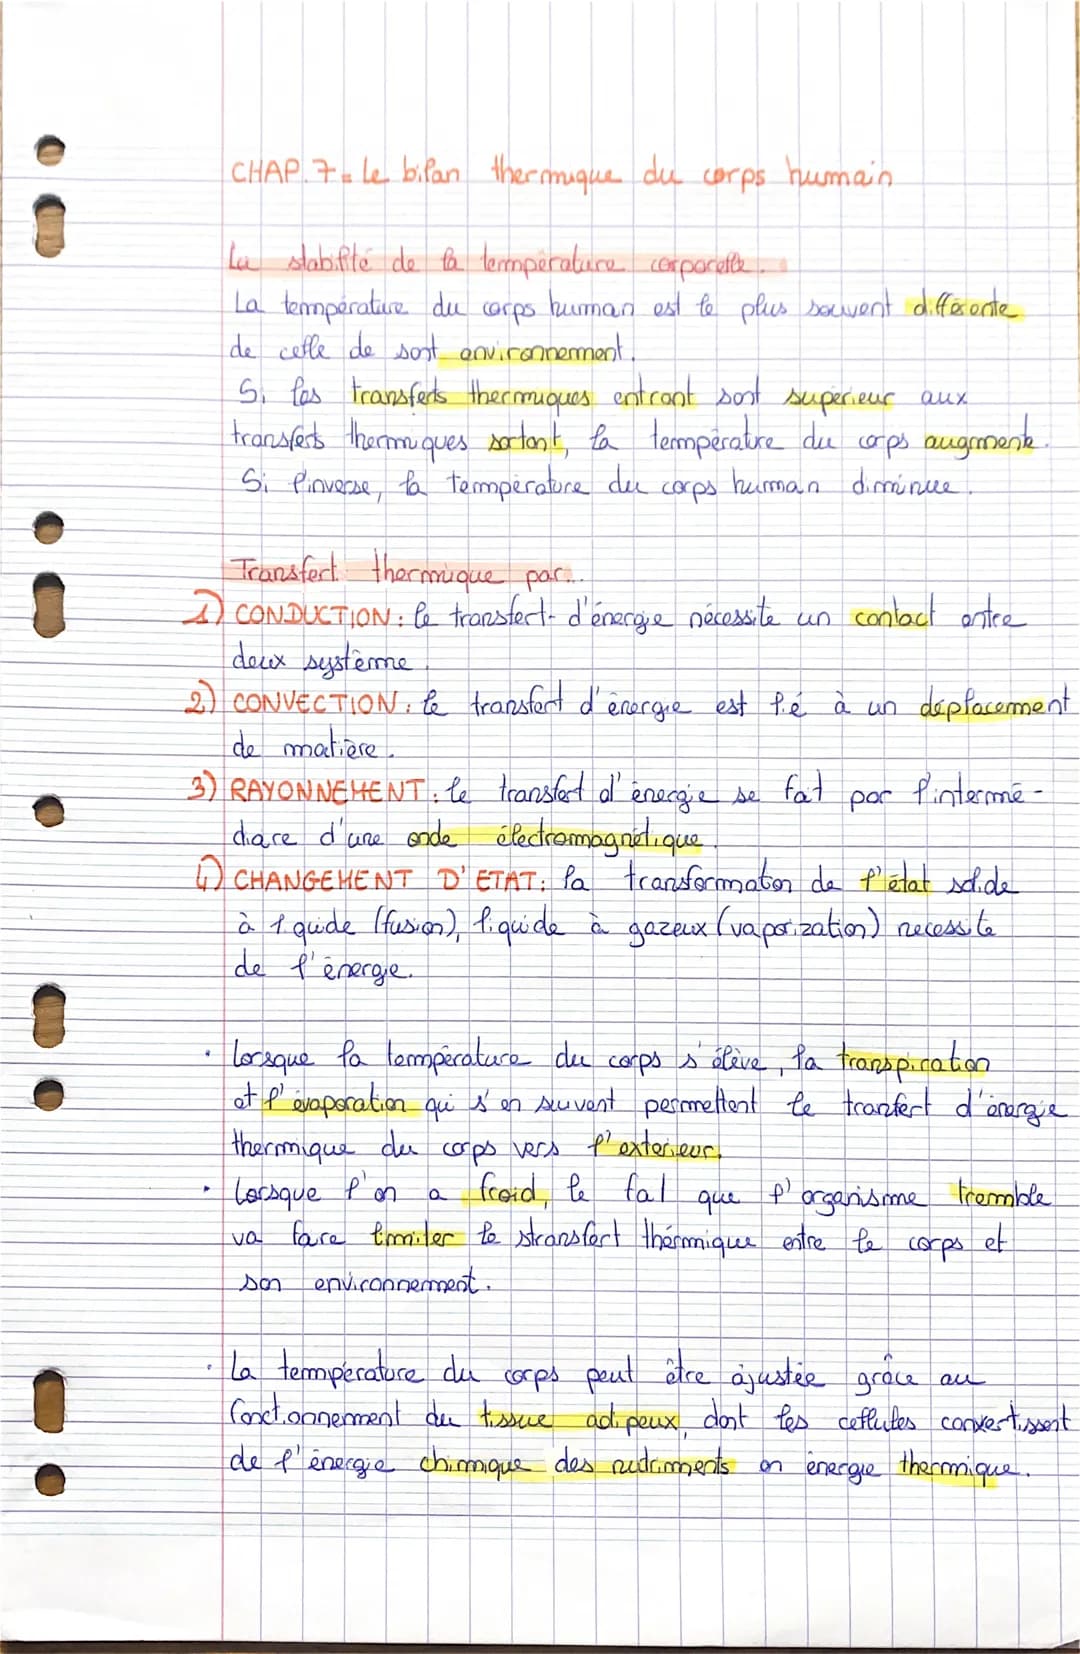 CHAP.7. Le bilan thermique du corps humain
La stabilité de la température corporelle.
La température du corps human est le plus souvent différente
de celle de sont environnement.
Si les transferts thermiques entrant sont supérieur aux
transferts thermiques sortant, la température du corps augmente.
Si l'inverse, la température du corps human diminue.
Transfert thermique par...
1) CONDUCTION : le transfert d'énergie nécessite un contact entre
deux système.
2) CONVECTION : le transfert d'énergie est lié à un déplacement
de matière.
3) RAYONNEMENT : le transfert d'énergie se fait par l'intermé-
diare d'une onde électromagnétique.
4) CHANGEMENT D'ETAT : la transformation de l'état solide
à liquide (fusion), liquide à gazeux (vaporization) necessite
de l'énergie.
• Lorsque la température du corps s'élève, la transpiration
et l'évaporation qui s'en suivent permettent le tranfert d'énergie
thermique du corps vers l'exterieur.
• Lorsque l'on a froid, le fat que l'organisme tremble
va faire limiter le stransfert thérmique entre le corps et
son environnement.
• La température du corps peut être ajustée grâce au
fonctionnement du tissue adipeux, dont les cellules convertissent
de l'énergie chimique des nutriments en énergie thermique.